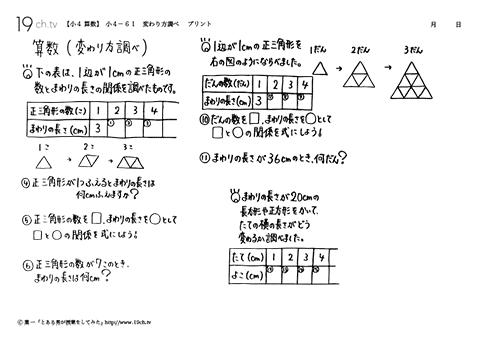 19ch.tv 【小4 算数】 小4-61 変わり方調べ プリント 月 日
算数(変わり方調べ)
下の表は、1辺が1cmの正三角形の
数とまわりの長さの関係を調べたものです。
正三角形の数(こ) 1 2 3 4
まわりの長さ(cm) 3 ① ② ③
1こ 2こ 3こ
④正三角形が1つふえるとまわりの長さは
何cmふえますか?
⑤正三角形の数を□、まわりの長さを○として
□と○の関係を式にしよう!
⑥正三角形の数が7このとき、
まわりの長さは何cm?
1辺が1cmの正三角形を
右の図のようにならべました。
1だん 2だん 3だん
だんの数(だん) 1 2 3 4
まわりの長さ(cm) 3 ⑦ ⑧ ⑨
⑩だんの数を□、まわりの長さを○として
□と○の関係を式にしよう!
⑪まわりの長さが36cmのとき、何だん?
まわりの長さが20cmの
長方形や正方形をかいて、
たての横の長さがどう
変わるか調べました。
たて(cm) 1 2 3 4
よこ(cm) ⑫ ⑬ ⑭ ⑮
©葉一「とある男が授業をしてみた」http://www.19ch.tv